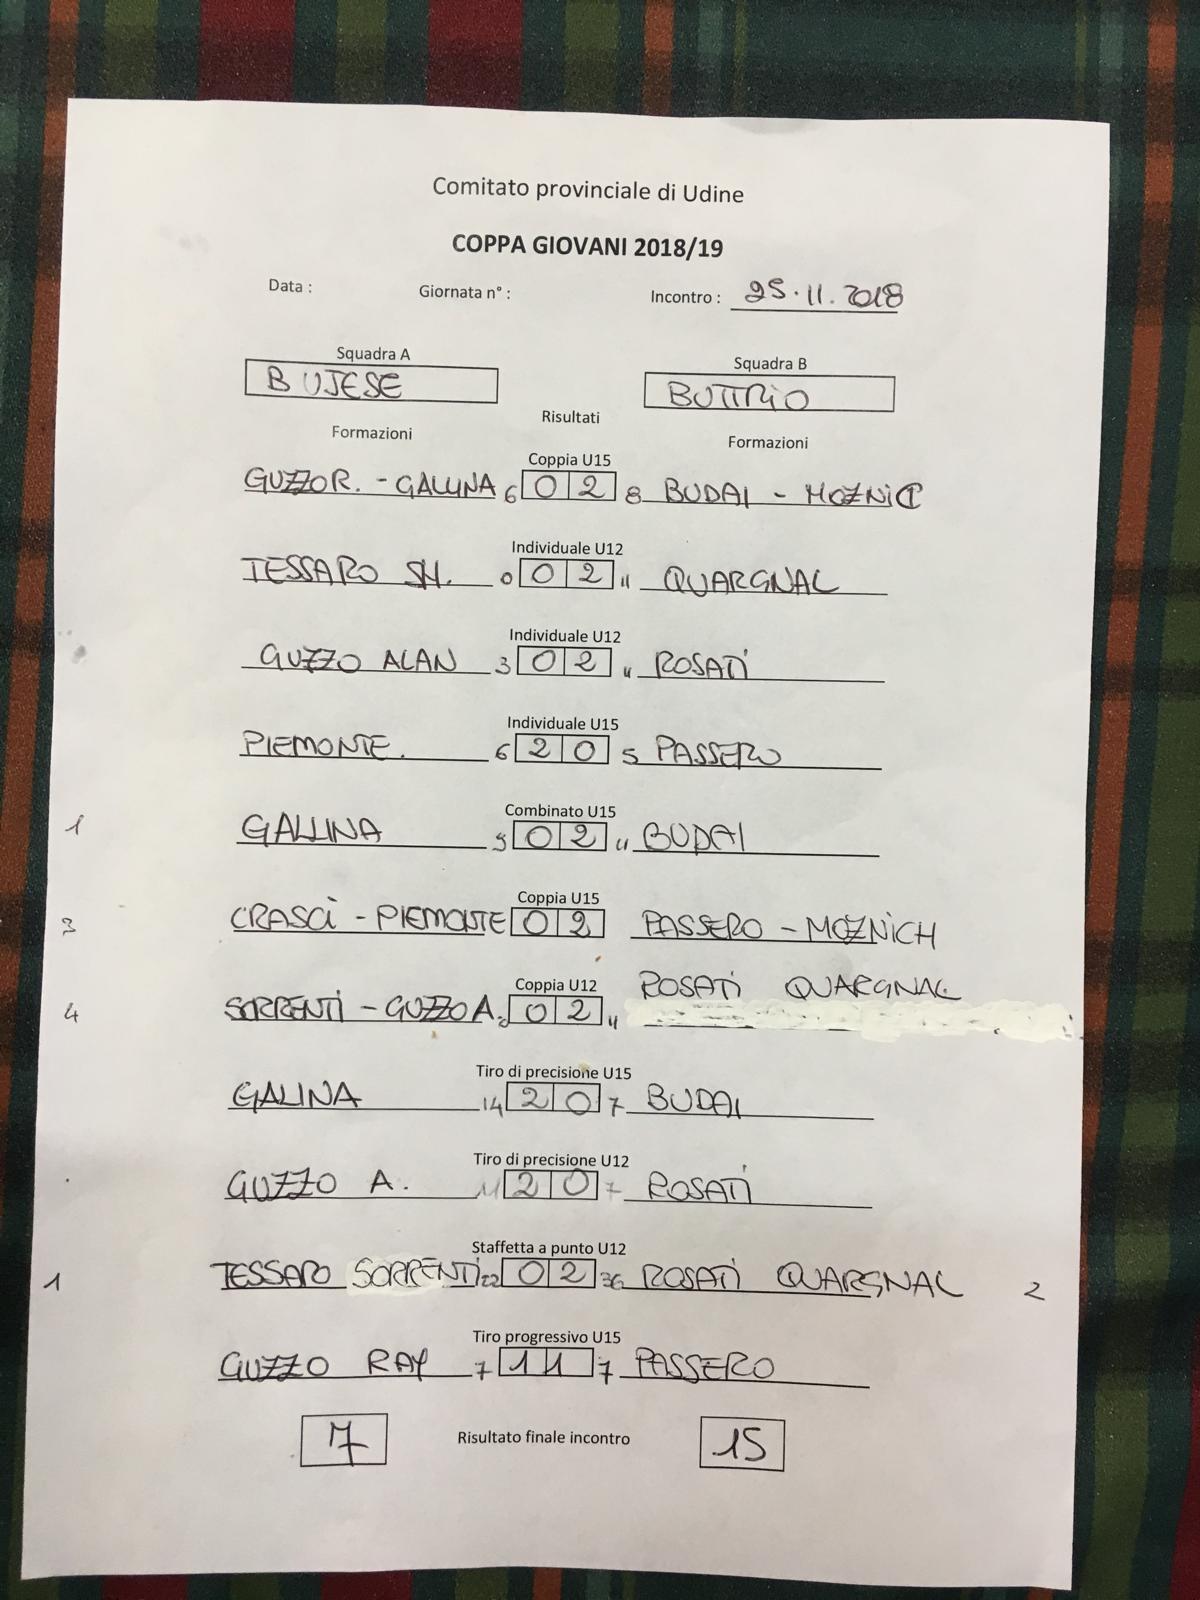 Comitato provinciale di Udine
COPPA GIOVANI 2018/19
Data : Giornata n° : Incontro : 25.11.2018
Squadra A Squadra B
BUJESE BUTTRIO
Risultati
Formazioni Formazioni
Coppia U15
GUZZO R. - GALLINA 6 0 2 8 BUDAI - MOZNICH
Individuale U12
TESSARO SH. 0 0 2 11 QUARGNAL
Individuale U12
GUZZO ALAN 3 0 2 4 ROSATI
Individuale U15
PIEMONTE. 6 2 0 5 PASSERO
Combinato U15
1 GALLINA 0 2 BUDAI
Coppia U15
3 CRASCI - PIEMONTE 0 2 PASSERO - MOZNICH
Coppia U12
4 SORRENTI - GUZZO A. 0 2 ROSATI QUARGNAL
Tiro di precisione U15
GALINA 14 2 0 7 BUDAI
Tiro di precisione U12
GUZZO A. 11 2 0 7 ROSATI
Staffetta a punto U12
1 TESSARO SORRENTI 22 0 2 36 ROSATI QUARGNAL 2
Tiro progressivo U15
GUZZO RAY 7 1 1 7 PASSERO
7 Risultato finale incontro 15